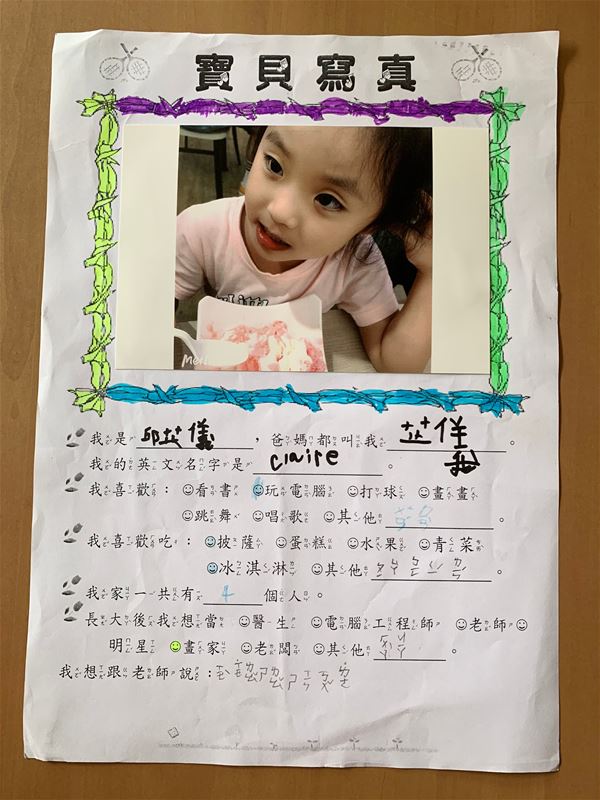 寶貝寫真
我是邱芷儀，爸媽都叫我芷佯。
我的英文名字是Claire。
我喜歡：看書 玩電腦 打球 畫畫
跳舞 唱歌 其他
我喜歡吃：披薩 蛋糕 水果 青菜
冰淇淋 其他
我家一共有4個人。
長大後我想當：醫生 電腦工程師 老師
明星 畫家 老闆 其他
我想跟老師說：